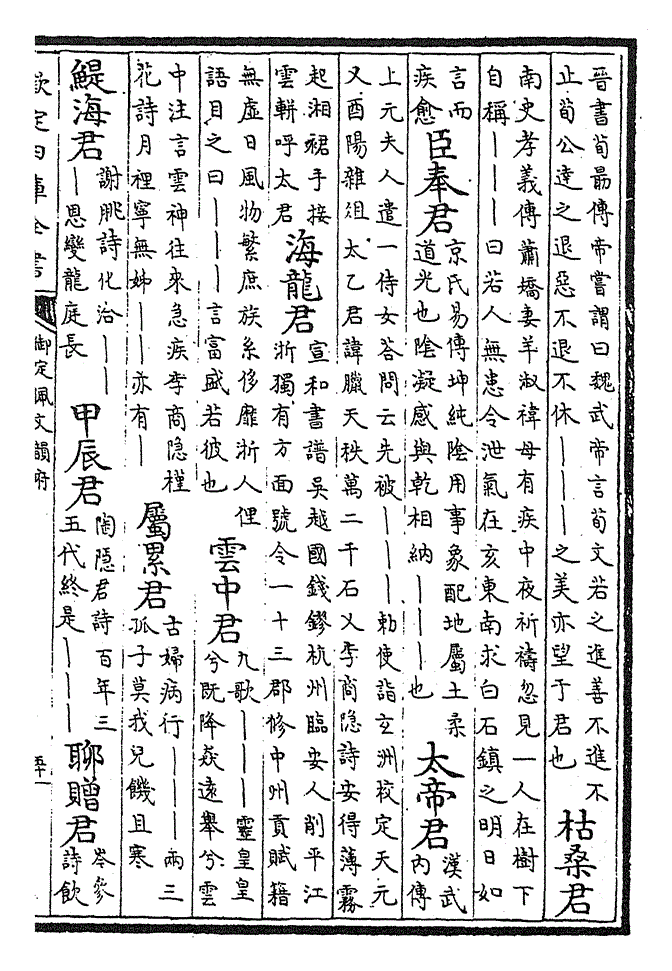 晉書荀勗傳帝嘗謂曰魏武帝言荀文若之進善不進不
止荀公達之退惡不退不休｜｜｜之美亦望于君也
枯桑君
南史孝義傳蕭矯妻羊淑褘母有疾中夜祈禱忽見一人在樹下
自稱｜｜｜曰若人無患令泄氣在亥東南求白石鎮之明日如
言而
疾愈
臣奉君
京氏易傳坤純陰用事象配地屬土柔
道光也陰凝感與乾相納｜｜｜也
太帝君
漢武
內傳
上元夫人遣一侍女答問云先被｜｜｜勅使詣玄洲校定天元
又酉陽雜俎太乙君諱臘天秩萬二千石又李商隐詩安得薄霧
起湘裙手接
雲軿呼太君
海龍君
宣和書譜吳越國錢鏐杭州臨安人削平江
浙獨有方面號令一十三郡修中州貢賦籍
無虛日風物繁庶族系侈靡浙人俚
語目之曰｜｜｜言富盛若彼也
雲中君
九歌｜｜｜靈皇皇
兮既降猋遠舉兮雲
中注言雲神往來急疾李商隐槿
花詩月裡寧無姊｜｜亦有｜
屬累君
古婦病行｜｜｜兩三
孤子莫我兒饑且寒
鯷海君
謝朓詩化洽｜｜
｜恩變龍庭長
甲辰君
陶隐君詩百年三
五代終是｜｜｜
聊贈君
岑參
詩飲
欽定四庫全書
御定佩文韻府